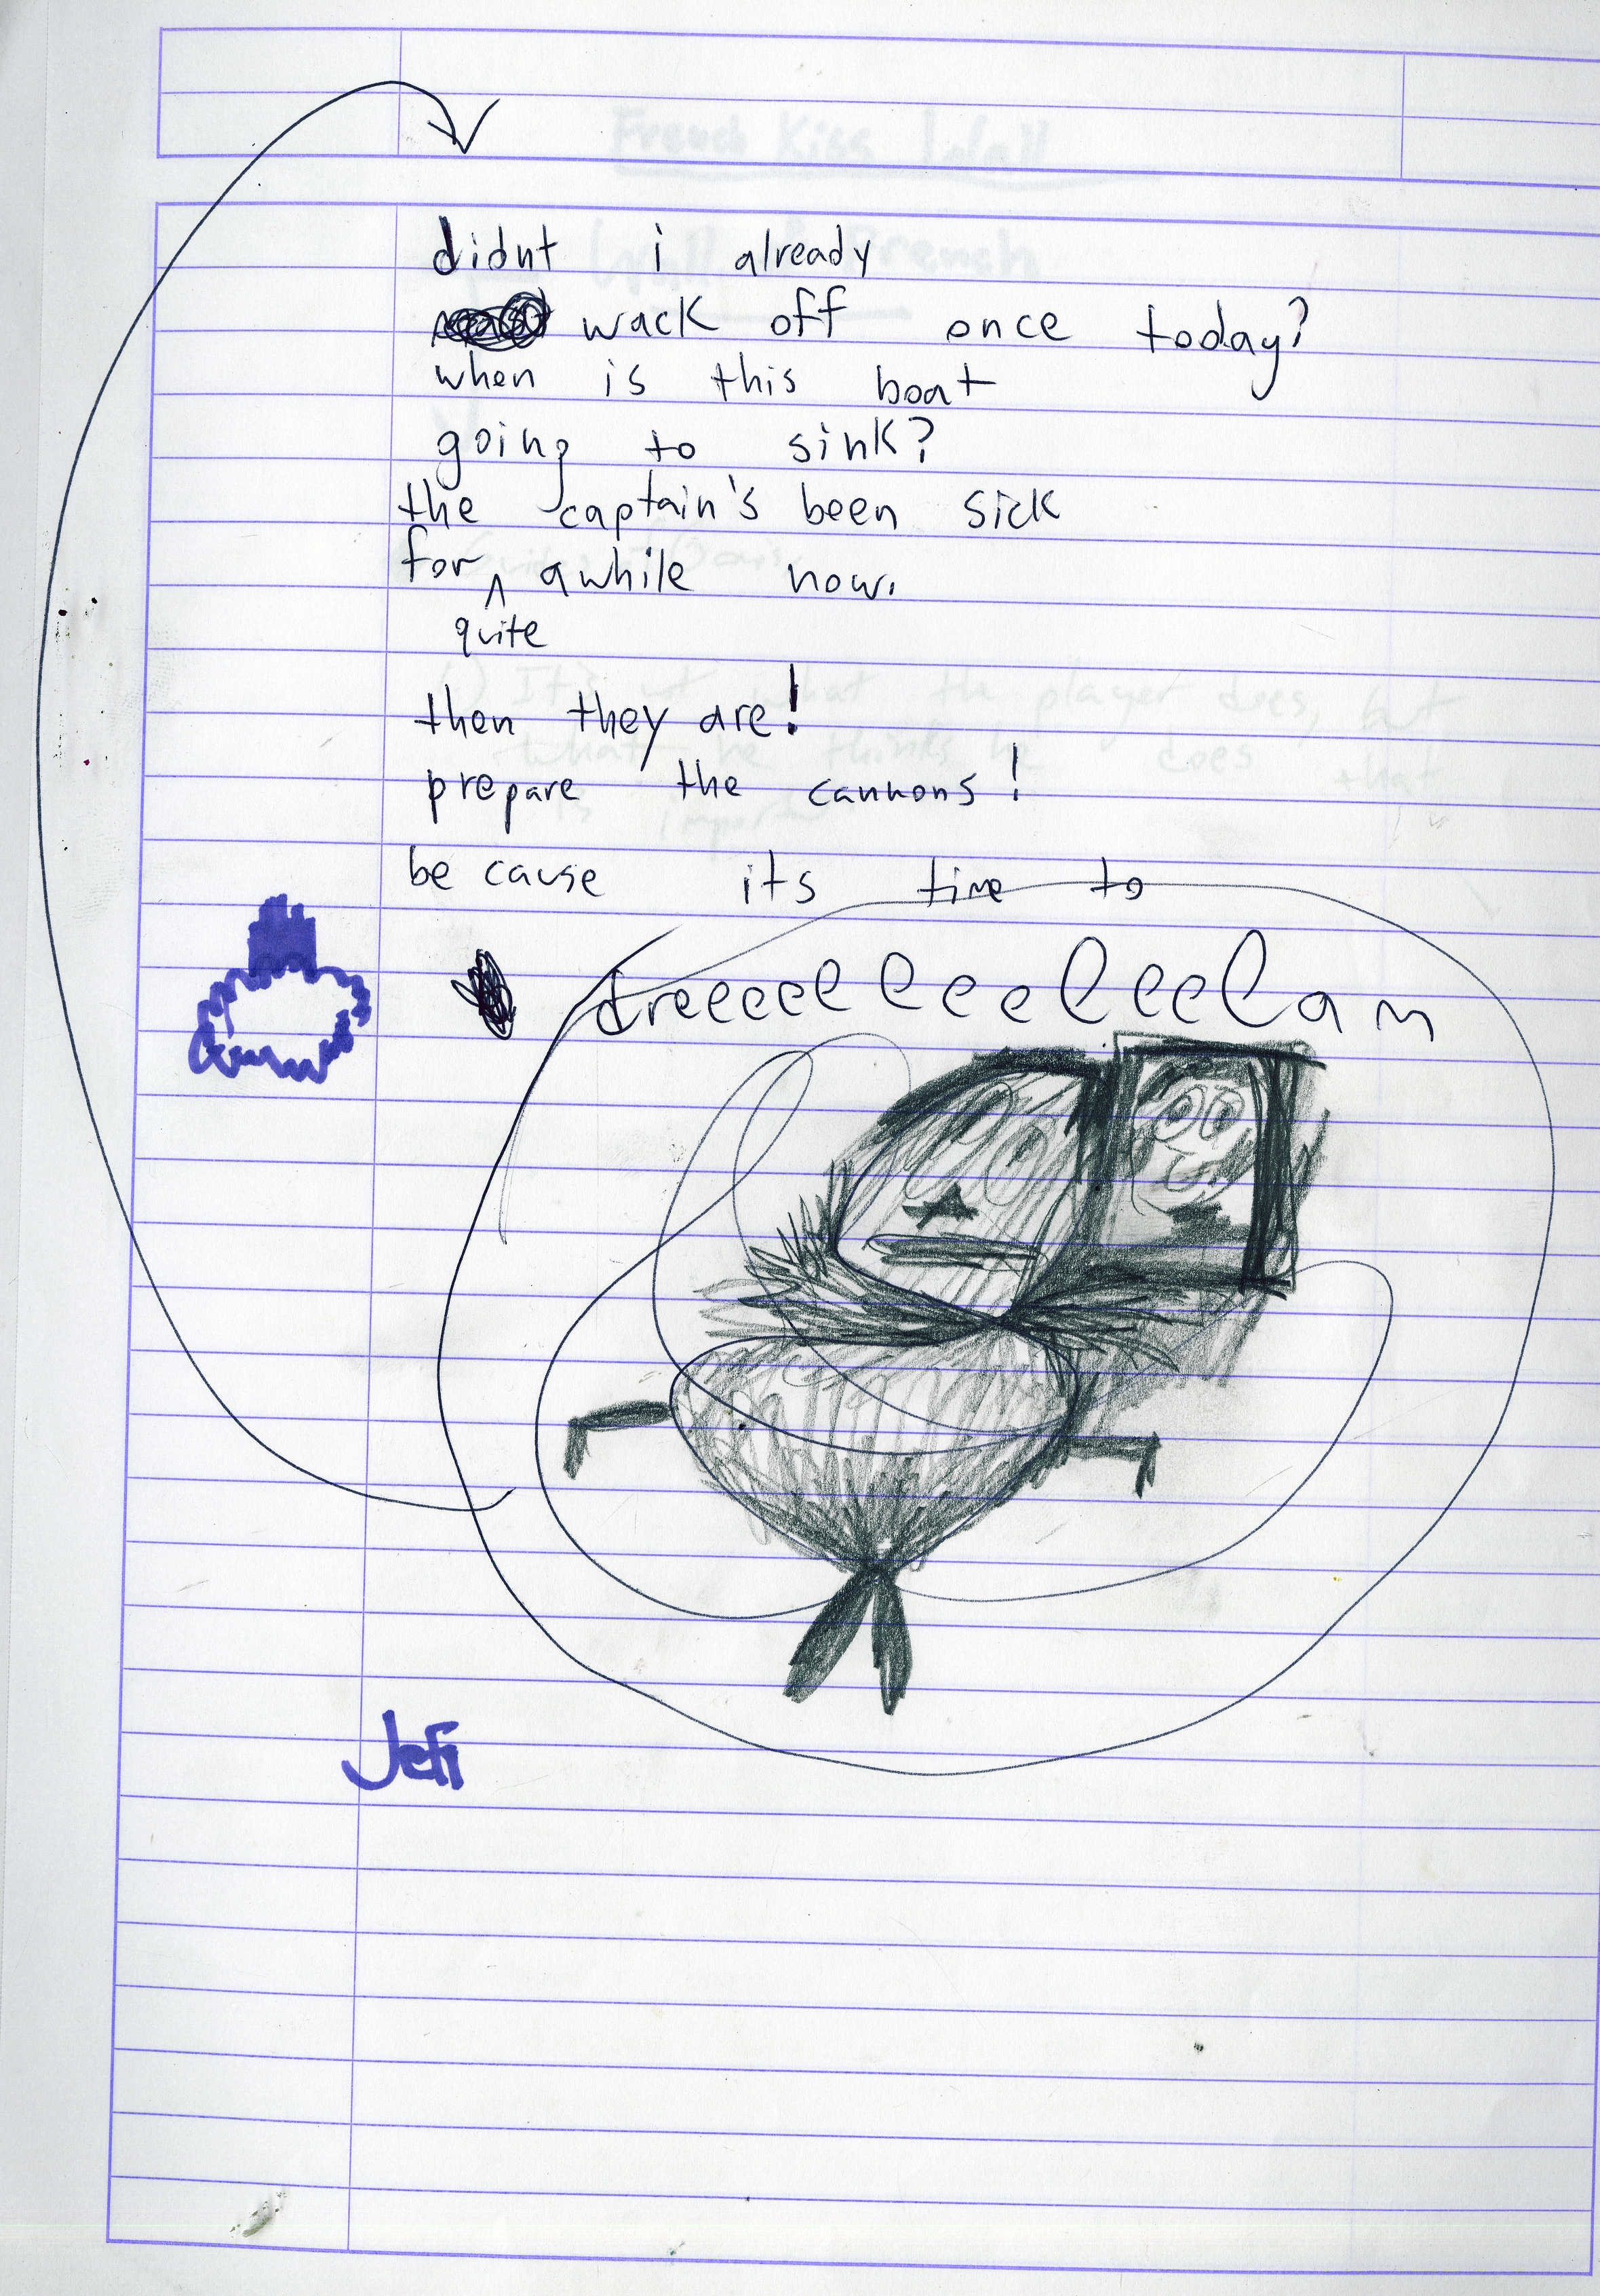 didnt i already
wack off once today?
when is this boat
going to sink?
the captain's been sick
for quite awhile now.
then they are!
prepare the cannons!
be cause its time to
dreeeeeeeeeeeeeam